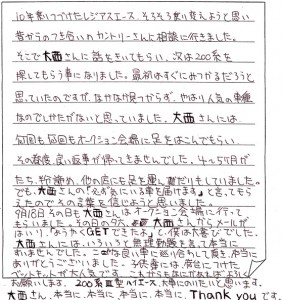 10年乗りつづけたレジアスエース、そろそろ乗り換えようと思い
昔からのつき合いのカントリーさんに相談に行きました。
そこで大西さんに話をきいてもらい、次は200系を
探してもらう事になりました。最初はすぐにみつかるだろうと
思っていたのですが、なかなか見つからず、やはり人気の車種
なのでしかたがないと思っていました。大西さんには、
何回も何回もオークション会場に足をはこんでもらい
その都度、良い返事が帰ってきませんでした。4ヶ5ヶ月が
たち、 諦め、他の店にも足を運んだりもしていました。
でも、大西さんの「必ずきにいる車を届けます」と言ってもら
えたのでその言葉を信じようと思いました。
9月18日その日も大西さんはオークション会場に行って
もらいました。その日の夕方、大西さんからメールが
はいり「ようやくGETできたよ」と、僕は大喜びでした。
大西さんには、いろいろと無理難題を言って本当に
すいませんでした。この度は良い車に巡り合わして頂き、本当に
ありがとうございました。子供達には、荷台につけた
ベットキットが大人気です。これからもなにかとおせわになるとお
もいますが、お願いします。200系 型ハイエース、大事にのりたいと思います。
大西さん、本当に、本当に、本当に、本当に、Thank youです。